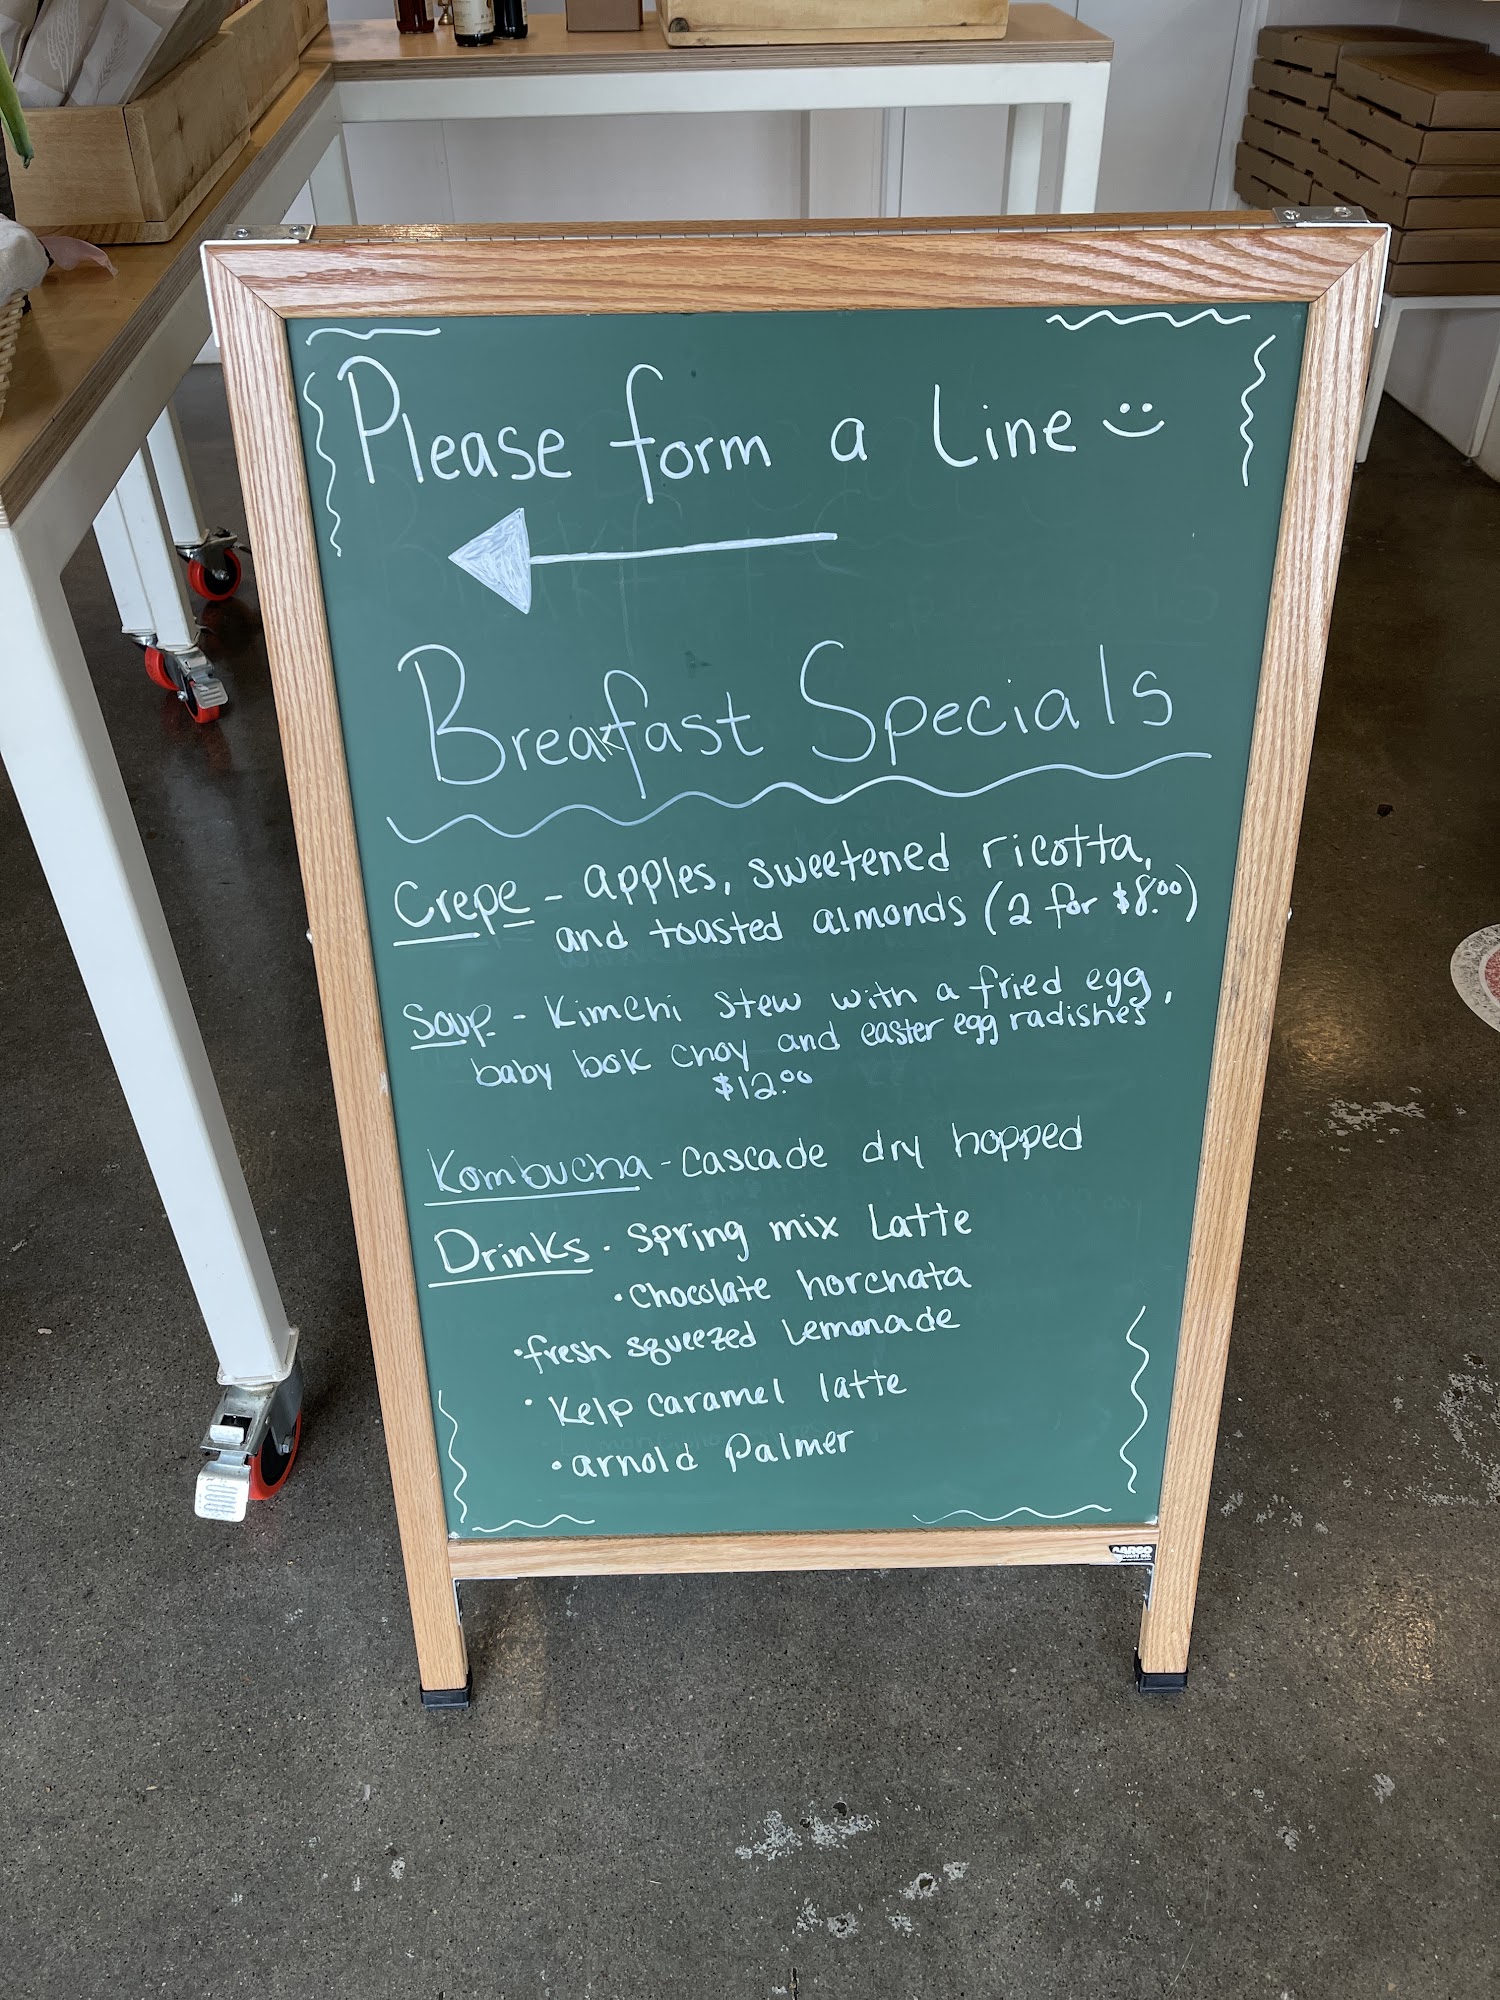 Please form a Line :)
Breakfast Specials
Crepe - apples, sweetened ricotta,
and toasted almonds (2 for $8.00)
Soup - Kimchi stew with a fried egg,
baby bok choy and easter egg radishes
$12.00
Kombucha - Cascade dry hopped
Drinks · Spring mix Latte
· Chocolate horchata
· fresh squeezed Lemonade
· Kelp caramel latte
· arnold Palmer